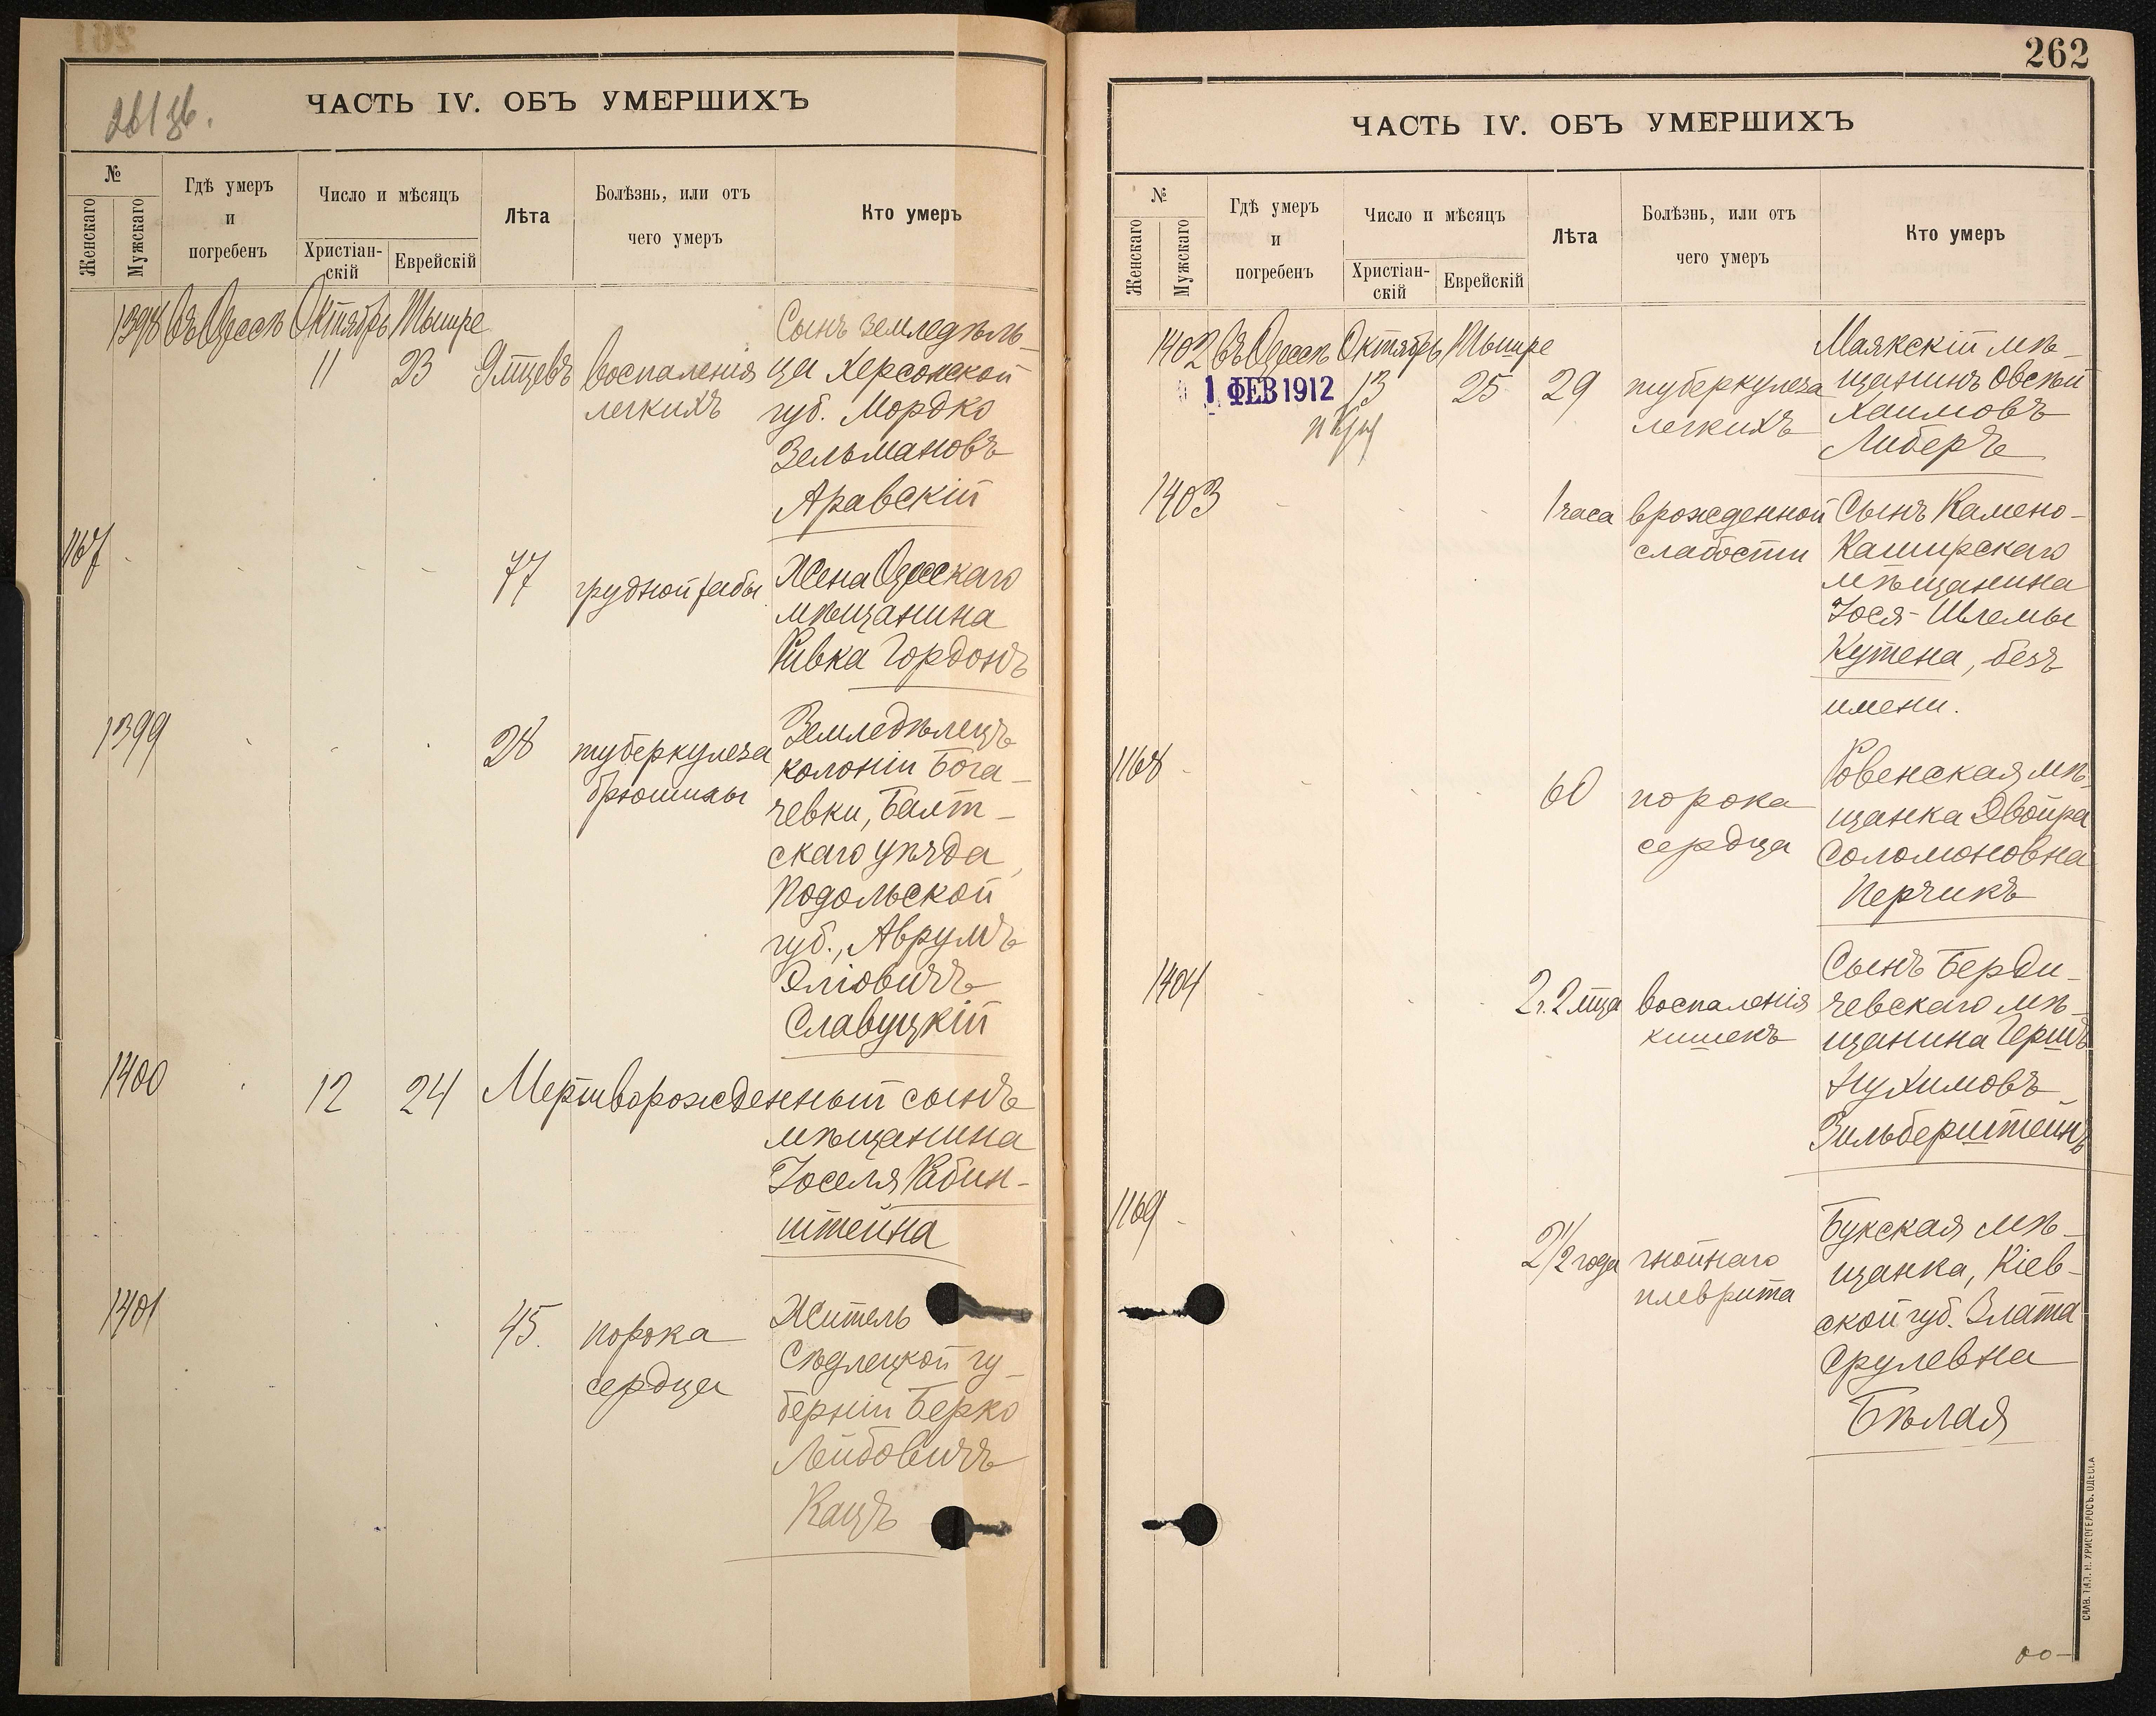 ЧАСТЬ IV. ОБЪ УМЕРШИХЪ
№
Женскаго
Мужскаго
Гдѣ умеръ
и
погребенъ
Число и мѣсяцъ
Христіан-
скій
Еврейскій
Лѣта
Болѣзнь, или отъ
чего умеръ
Кто умеръ
1398 въ Одессѣ Октябрь Тышре
11 23 9 мцевъ воспаленія
легкихъ
Сынъ земледѣль-
ца Херсонской
губ. Мордко
Зельмановъ
Аравскій
1167
77 грудной жабы
Жена Одесскаго
мѣщанина
Ривка Гордонъ
1399
28 туберкулеза
брюшины
Земледѣлецъ
колоніи Бога-
чевки, Балт-
скаго уѣзда,
Подольской
губ., Аврумъ
Эліовичъ
Славуцкій
1400
12 24 Мертворожденный сынъ
мѣщанина
Іоселя Рабин-
штейна
1401
45. порока
сердца
Житель
Сѣдлецкой гу-
берніи Берко
Лейбовичъ
Кацъ
262
ЧАСТЬ IV. ОБЪ УМЕРШИХЪ
№
Женскаго
Мужскаго
Гдѣ умеръ
и
погребенъ
Число и мѣсяцъ
Христіан-
скій
Еврейскій
Лѣта
Болѣзнь, или отъ
чего умеръ
Кто умеръ
1402 въ Одессѣ Октябрь Тышре
1 ФЕВ 1912
13 25 29 туберкулеза
легкихъ
Маякскій мѣ-
щанинъ Овсѣй
Хаимовъ
Либеръ
1403
1 часа врожденной
слабости
Сынъ Камено-
Каширскаго
мѣщанина
Іося-Шлемы
Кутена, безъ
имени.
1168
60 порока
сердца
Ровенская мѣ-
щанка Двойра
Соломоновна
Перчикъ
1404
2 г. 2 мца воспаленія
кишекъ
Сынъ Берди-
чевскаго мѣ-
щанина Гершъ
Нухимовъ
Зильберштейнъ
1169
2 1/2 года гнойнаго
плеврита
Букская мѣ-
щанка, Кіев-
ской губ. Злата
Срулевна
Бѣлая
СЛАВ. ТИП. Н. ХРИСОГЕЛОСЪ. ОДЕССА